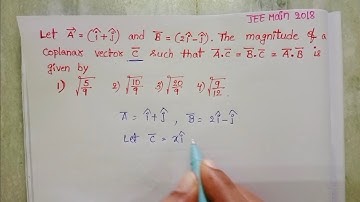 JEE Main 2018
Let A⃗ = (î + ĵ) and B⃗ = (2î - ĵ). The magnitude of a
coplanar vector C⃗ such that A̅.C̅ = B̅.C̅ = A̅.B̅ is
given by
1) √5/9 2) √10/9 3) √20/9 4) √9/12.
A̅ = î + ĵ, B̅ = 2î - ĵ
Let C̅ = xî